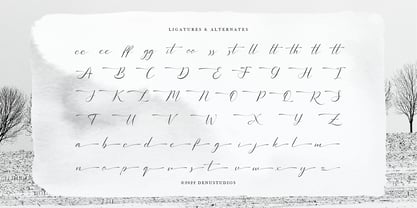 LIGATURES & ALTERNATES
cc ee ff gg it oo ss st ll tt th tt tt
A B C D E F G H I
J K L M N O P Q R S
T U V W X Y Z
a b c d e f g i j k l m
n o p q r s t v w x y z
©2022 DENUSTUDIOS